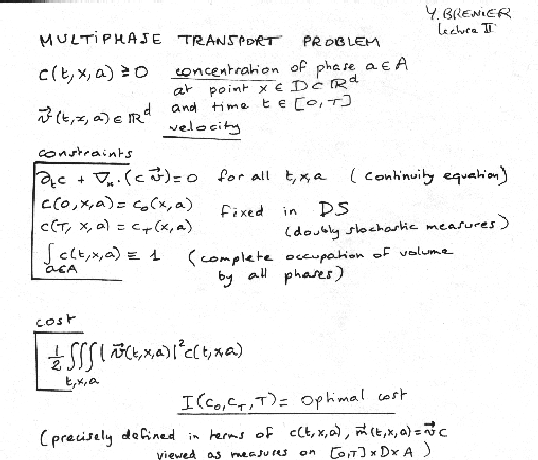 Y. BRENIER
Lecture II
MULTIPHASE TRANSPORT PROBLEM
c(t,x,a) ≥ 0 concentration of phase a ∈ A
at point x ∈ D ⊂ ℝᵈ
and time t ∈ [0,T]
v⃗(t,x,a) ∈ ℝᵈ
velocity
constraints
∂ₜc + ∇ₓ.(c v⃗) = 0 for all t,x,a (continuity equation)
c(0,x,a) = c₀(x,a)
fixed in DS
c(T,x,a) = c_T(x,a)
(doubly stochastic measures)
∫ c(t,x,a) ≡ 1 (complete occupation of volume
a∈A
by all phases)
cost
1/2 ∭ |v⃗(t,x,a)|² c(t,x,a)
t,x,a
I(c₀,c_T,T) = optimal cost
(precisely defined in terms of c(t,x,a), m⃗(t,x,a) = v⃗ c
viewed as measures on [0,T] × D × A )